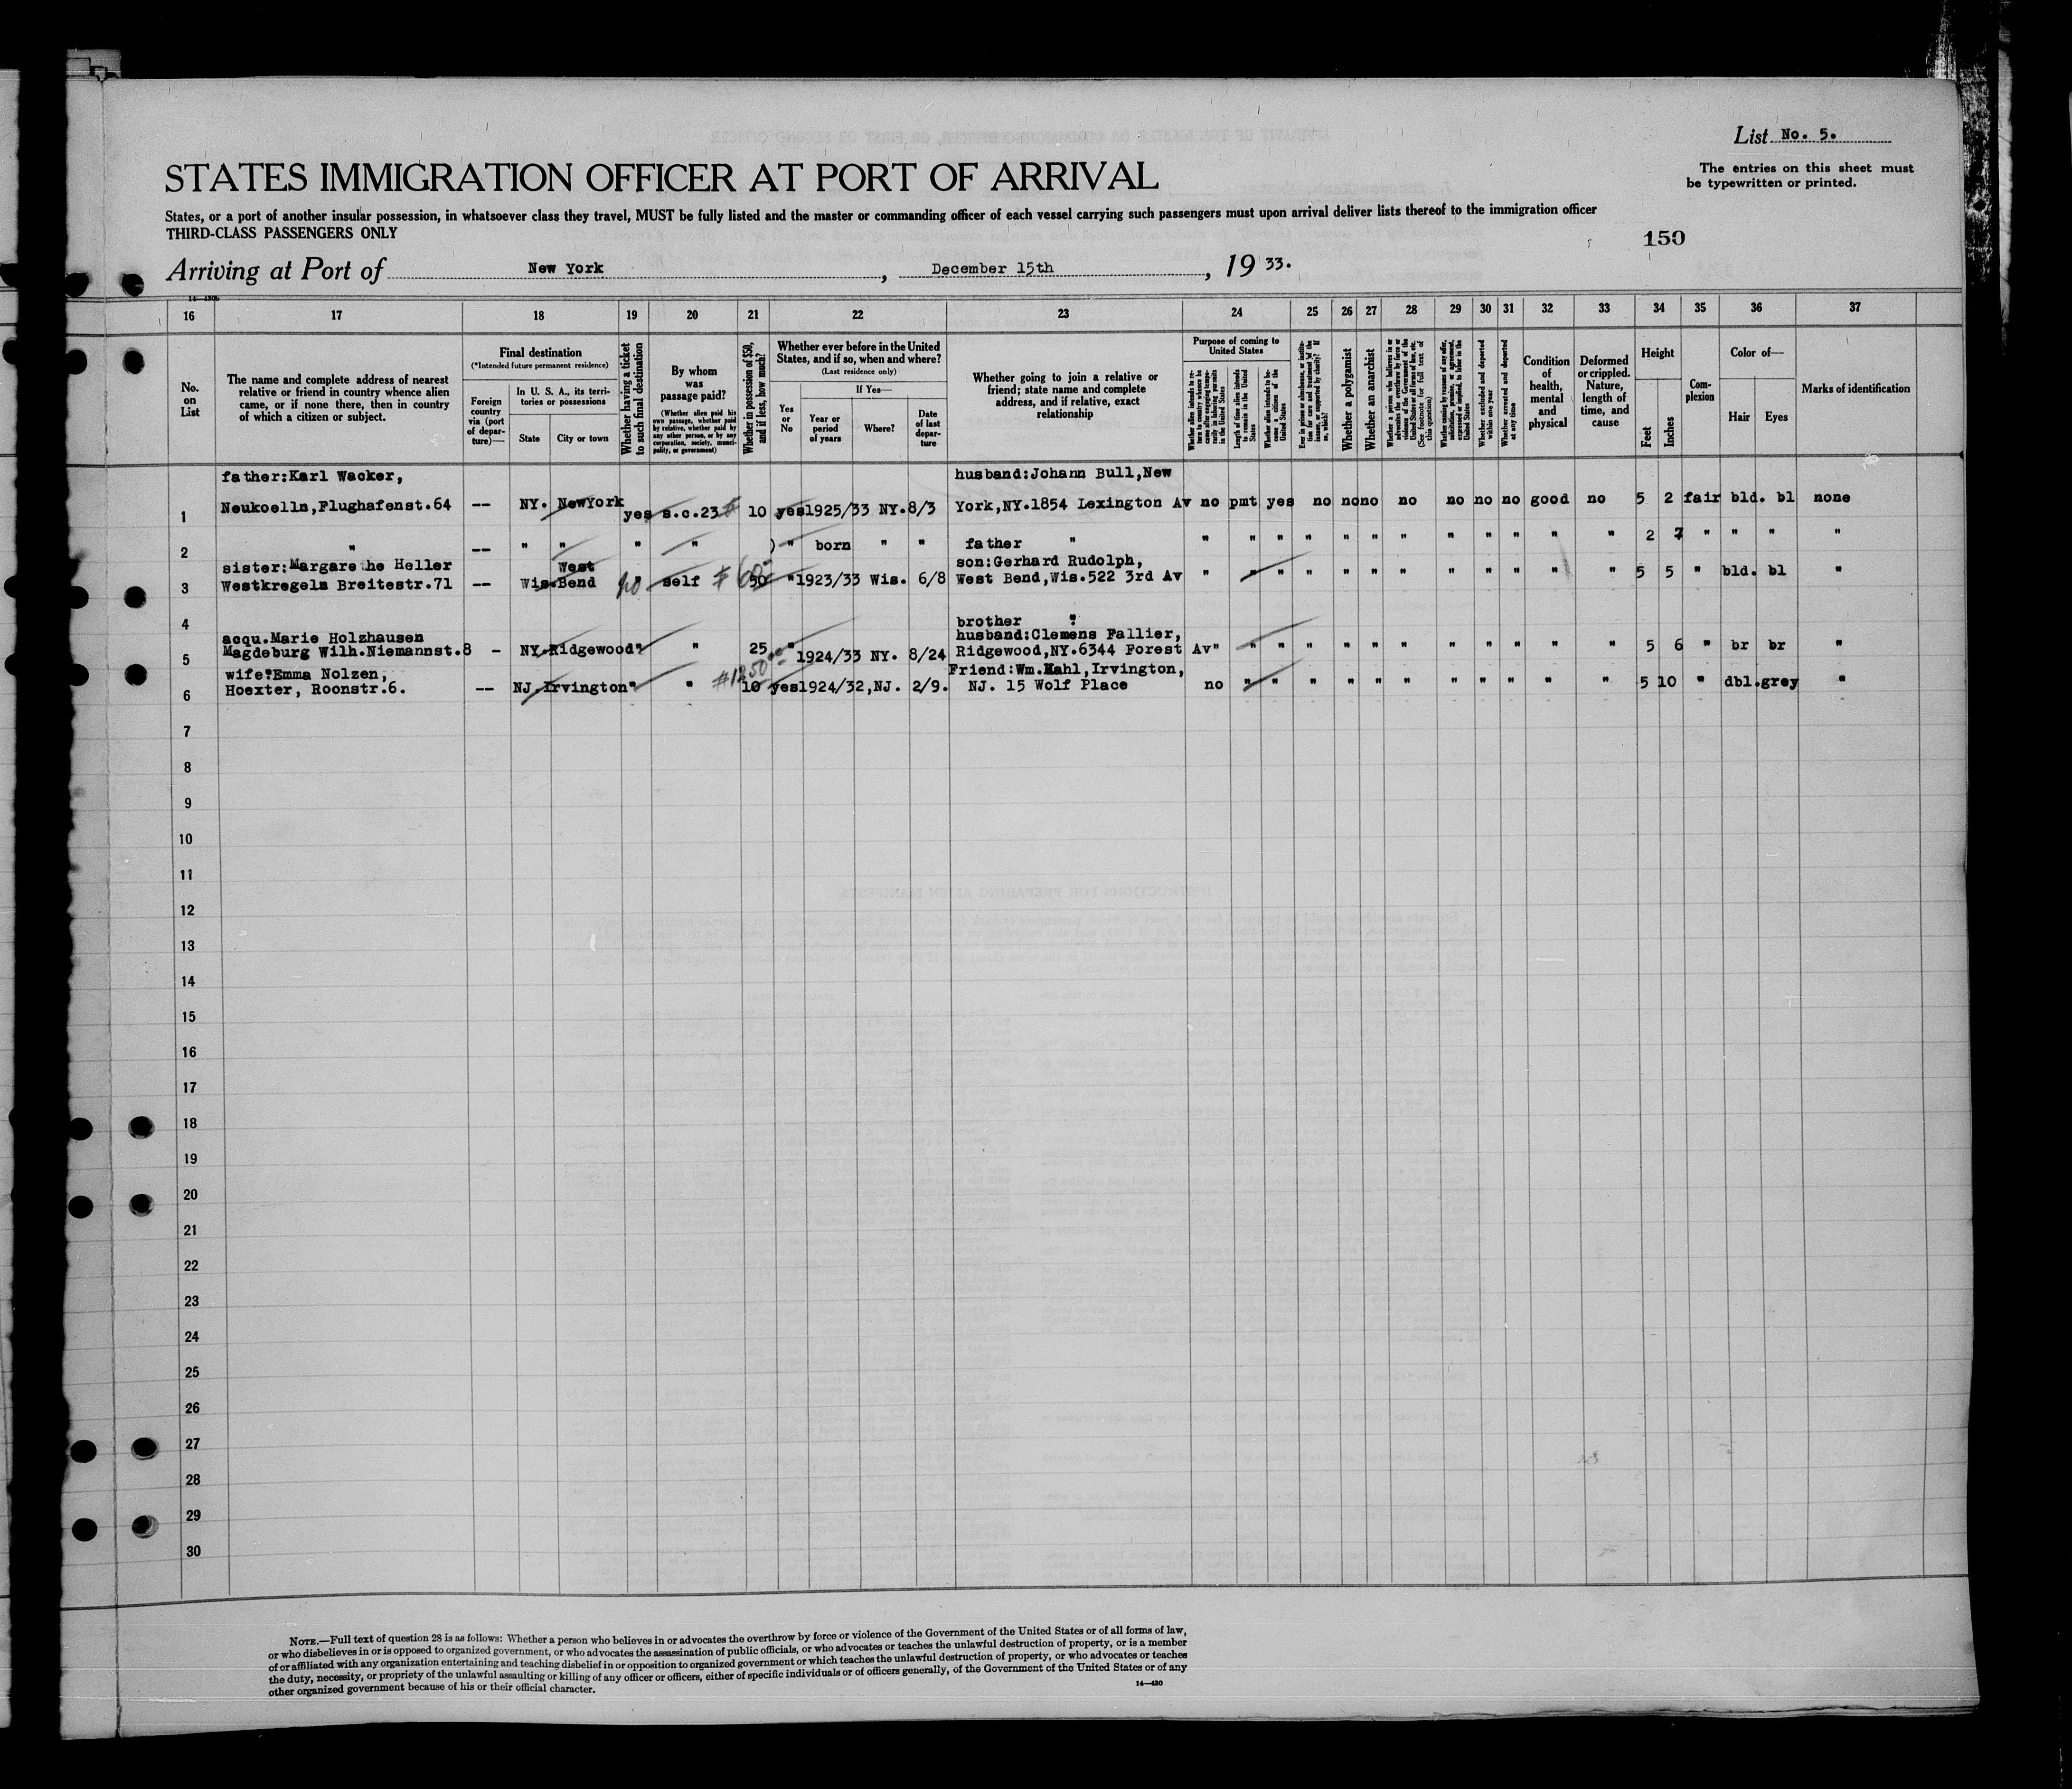 List No. 5.
STATES IMMIGRATION OFFICER AT PORT OF ARRIVAL
The entries on this sheet must
be typewritten or printed.
States, or a port of another insular possession, in whatsoever class they travel, MUST be fully listed and the master or commanding officer of each vessel carrying such passengers must upon arrival deliver lists thereof to the immigration officer
THIRD-CLASS PASSENGERS ONLY
150
Arriving at Port of New York, December 15th, 19 33.
16 17 18 19 20 21 22 23 24 25 26 27 28 29 30 31 32 33 34 35 36 37
No.
on
List
The name and complete address of nearest
relative or friend in country whence alien
came, or if none there, then in country
of which a citizen or subject.
Final destination
(*Intended future permanent residence)
Foreign
country
via (port
of depar-
ture)—
In U. S. A., its terri-
tories or possessions
State
City or town
Whether having a ticket
to such final destination
By whom
was
passage paid?
(Whether alien paid his
own passage, whether paid
by relative, whether paid by
any other person, or by any
corporation, society, munici-
pality, or government)
Whether in possession of $50,
and if less, how much?
Whether ever before in the United
States, and if so, when and where?
(Last residence only)
Yes
or
No
If Yes—
Year or
period
of years
Where?
Date
of last
depar-
ture
Whether going to join a relative or
friend; state name and complete
address, and if relative, exact
relationship
Purpose of coming to
United States
Whether alien intends to re-
turn to country whence he
came after engaging tempo-
rarily in laboring pursuits
in the United States
Length of time alien intends
to remain in the United
States
Whether alien intends to be-
come a citizen of the
United States
Ever in prison or almshouse, or institu-
tion for care and treatment of the
insane, or supported by charity? If
so, which?
Whether a polygamist
Whether an anarchist
Whether a person who believes in or
advocates the overthrow by force or
violence of the Government of the
United States or all forms of law, etc.
(See footnote for full text of
this question)
Whether coming by reason of any offer,
solicitation, promise, or agreement,
expressed or implied, to labor in the
United States
Whether excluded and deported
within one year
Whether arrested and deported
at any time
Condition
of
health,
mental
and
physical
Deformed
or crippled.
Nature,
length of
time, and
cause
Height
Feet
Inches
Com-
plexion
Color of—
Hair
Eyes
Marks of identification
father:Karl Wacker, husband:Johann Bull,New
1 Neukoelln,Flughafenst.64 -- NY. NewYork yes s.c.23 10 yes1925/33 NY.8/3 York,NY.1854 Lexington Av no pmt yes no no no no no no no good no 5 2 fair bld. bl none
2 " -- " " " " ) " born " " father " " " " " " " " " " " " " 2 7 " " " "
sister:Margarethe Heller West son:Gerhard Rudolph,
3 Westkregeln Breitestr.71 -- Wis. Bend " no self $60- 50 " 1923/33 Wis. 6/8 West Bend,Wis.522 3rd Av " " " " " " " " " " " " 5 5 " bld. bl "
4 brother "
acqu.Marie Holzhausen husband:Clemens Fallier,
5 Magdeburg Wilh.Niemannst.8 - NY. Ridgewood " " 25 " 1924/33 NY. 8/24 Ridgewood,NY.6344 Forest Av " " " " " " " " " " " " 5 6 " br br "
wife:Emma Nolzen, $1250 Friend:Wm.Kahl,Irvington,
6 Hoexter, Roonstr.6. -- NJ. Irvington " " 10 yes1924/32,NJ. 2/9. NJ. 15 Wolf Place no " " " " " " " " " " " 5 10 " dbl.grey "
7
8
9
10
11
12
13
14
15
16
17
18
19
20
21
22
23
24
25
26
27
28
29
30
NOTE.—Full text of question 28 is as follows: Whether a person who believes in or advocates the overthrow by force or violence of the Government of the United States or of all forms of law,
or who disbelieves in or is opposed to organized government, or who advocates the assassination of public officials, or who advocates or teaches the unlawful destruction of property, or is a member
of or affiliated with any organization entertaining and teaching disbelief in or opposition to organized government or which teaches the unlawful destruction of property, or who advocates or teaches
the duty, necessity, or propriety of the unlawful assaulting or killing of any officer or officers, either of specific individuals or of officers generally, of the Government of the United States or of any
other organized government because of his or their official character.
14—430